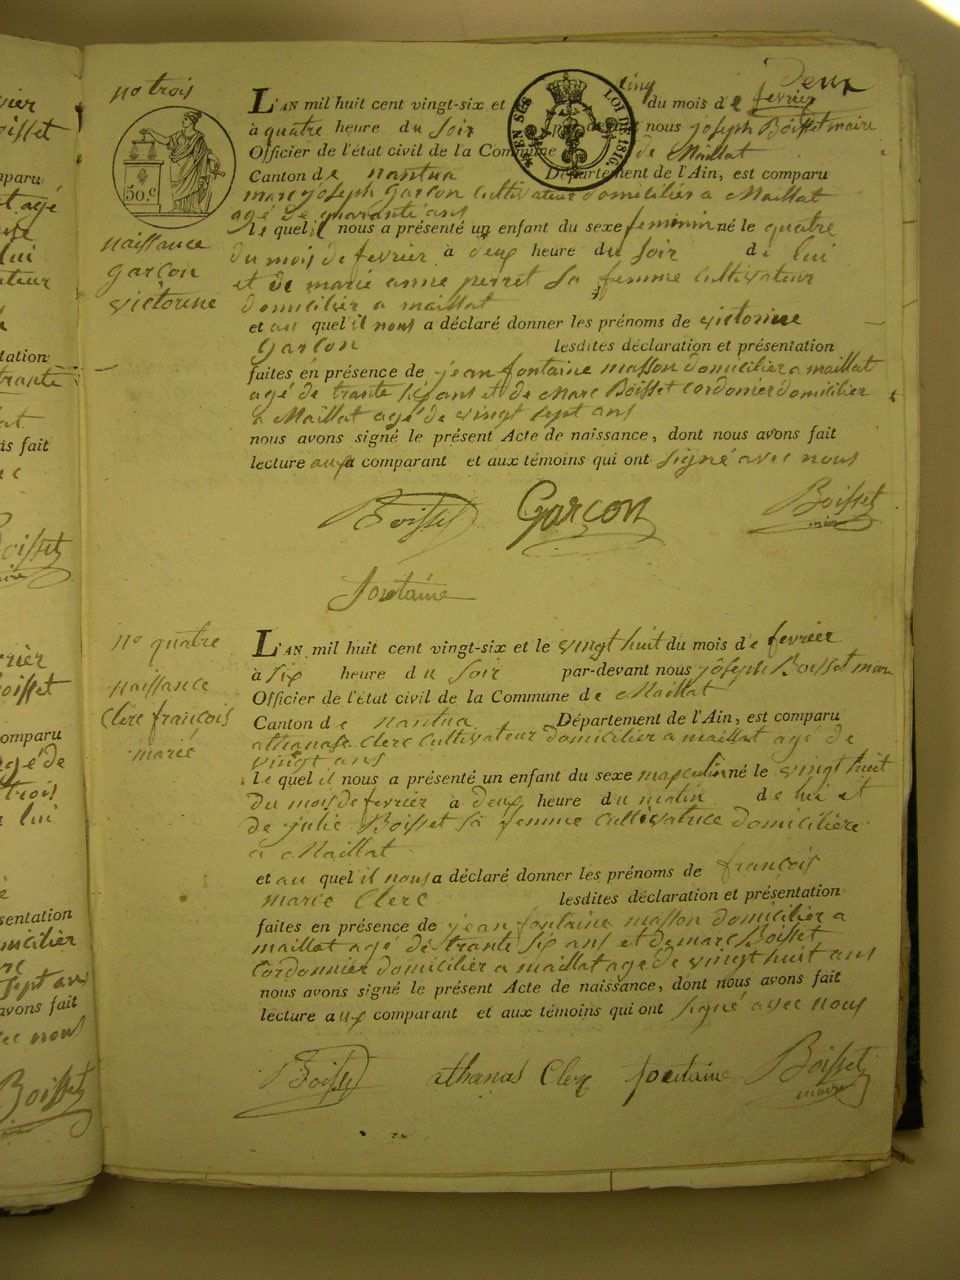 Deux
no trois
L'AN mil huit cent vingt-six et cinq du mois de fevrier
à quatre heure du soir nous joseph Boisset maire
Officier de l'état civil de la Commune de Maillat
Canton de nantua Département de l'Ain, est comparu
marc joseph Garçon Cultivateur domicilier a Maillat
agé de quarante ans
le quel il nous a présenté un enfant du sexe feminin né le quatre
du mois de fevrier à deux heure du soir de lui
et de marie anne perret sa femme Cultivateur
domicilier a maillat
et au quel il nous a déclaré donner les prénoms de victorine
Garçon lesdites déclaration et présentation
faites en présence de jean fontaine masson domicilier a maillat
agé de trante six ans et de Marc Boisset cordonier domicilier
a Maillat agé de vingt sept ans
nous avons signé le présent Acte de naissance, dont nous avons fait
lecture aux comparant et aux témoins qui ont signé avec nous
SEN SES LOI DE 1816
50.c
naissance
garçon
victorine
Boisset Garçon Boisset
maire
fontaine
no quatre
naissance
Clerc françois
marie
L'AN mil huit cent vingt-six et le vingt huit du mois de fevrier
à six heure du soir par-devant nous joseph Boisset maire
Officier de l'état civil de la Commune de Maillat
Canton de nantua Département de l'Ain, est comparu
athanase Clerc Cultivateur domicilier a maillat agé de
vingt ans
le quel il nous a présenté un enfant du sexe masculin né le vingt huit
du mois de fevrier à deux heure du matin de lui et
de julie Boisset sa femme Cultivatrice domicilière
a Maillat
et au quel il nous a déclaré donner les prénoms de françois
marie Clerc lesdites déclaration et présentation
faites en présence de jean fontaine masson domicilier a
maillat agé de trante six ans et de marc Boisset
Cordonnier domicilier a maillat age de vingt huit ans
nous avons signé le présent Acte de naissance, dont nous avons fait
lecture aux comparant et aux témoins qui ont signé avec nous
Boisset athanas Clerc fontaine Boisset
maire